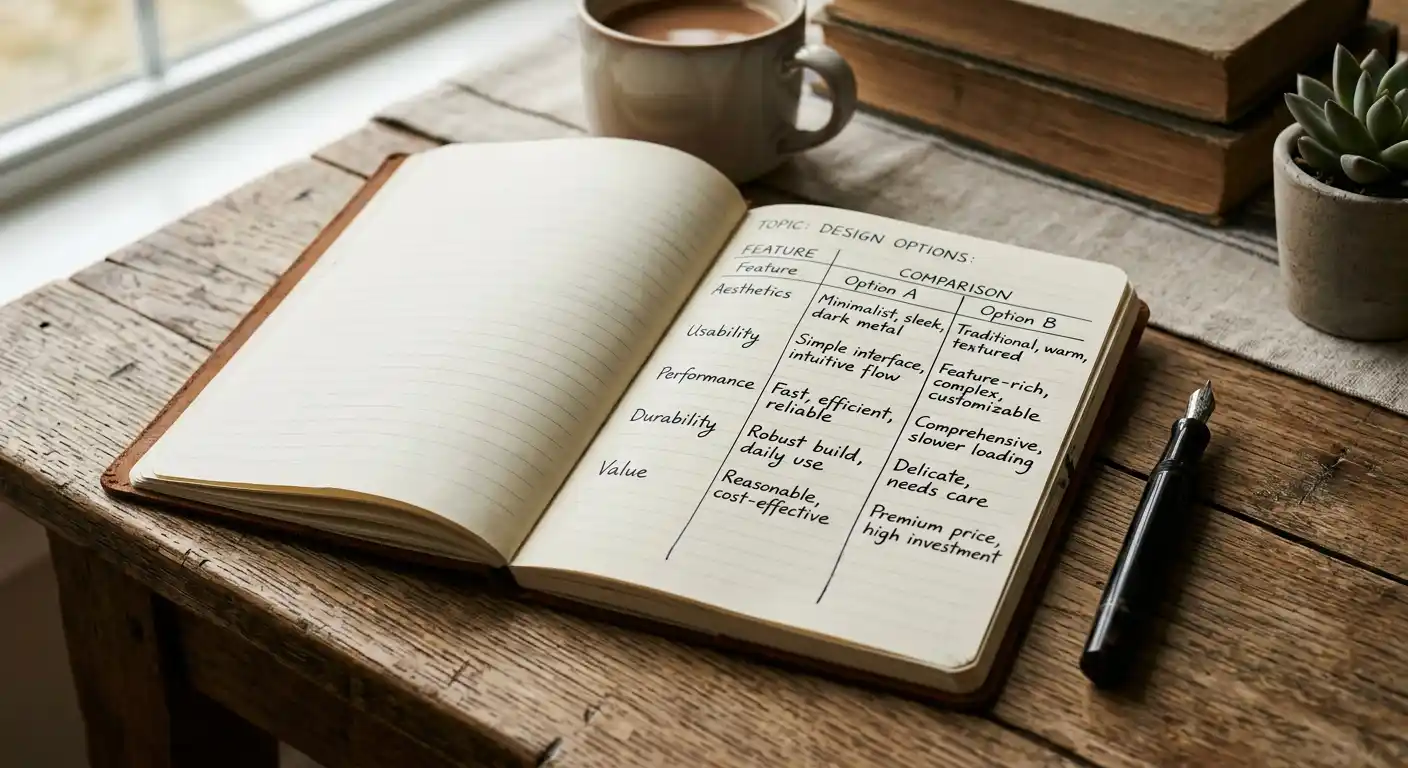 TOPIC: DESIGN OPTIONS:
FEATURE COMPARISON
Feature Option A Option B
Aesthetics Minimalist, sleek, Traditional, warm,
dark metal textured
Usability Simple interface, Feature-rich,
intuitive flow complex,
customizable
Performance Fast, efficient, Comprehensive,
reliable slower loading
Durability Robust build, Delicate,
daily use needs care
Value Reasonable, Premium price,
cost-effective high investment